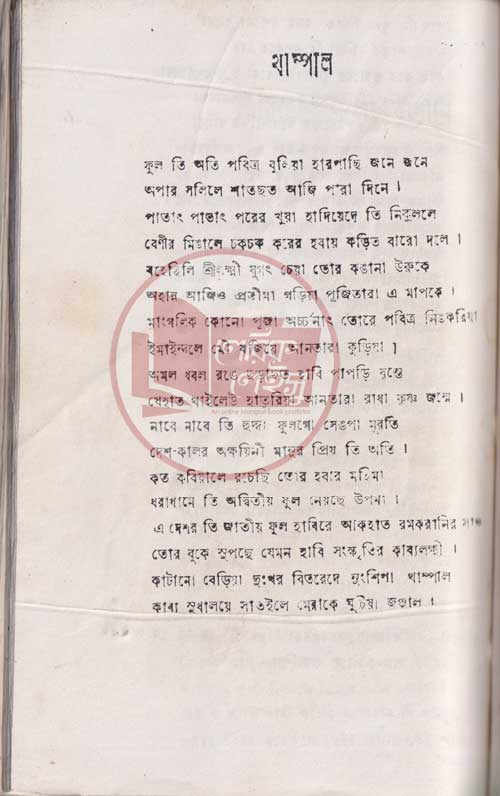 থাম্পাল
ফুল তি অতি পবিত্র বুলিয়া হারপাছি জনে জনে
অপার সলিলে শাতছত আজি প'রা দিনে ।
পাতাৎ পাতাৎ পরের খুয়া হাদিয়েদে তি নিকুললে
বেণীর মিঙালে চকচক করের হবায় কড়িত বারো দলে ।
রহেছিলি শ্রীলক্ষ্মী যুগৎ চেয়া তোর কঙানা উরুকে
অহান্ন আজিও প্রতীমা গড়িয়া পূজিতারা এ মাপকে ।
মাংগলিক কোনো পূজা অর্চ্চনাৎ তোরে পবিত্র নিঙকরিয়া
ইমাইন্দলে মেই আনতারা কুড়িয়া ।
অমল ধবল রঙে হাবি পাপড়ি বৃন্তে
যেহাত থাইলেউ হাতরিয়া আনতারা রাধা কৃষ্ণ জন্মে ।
নাবে নাবে তি হুদ্দা ফুলগো সেঙপা মুরতি
দেশ-কালর অক্ষয়িনী মানুর প্রিয় তি অতি ।
কত কবিয়ালে রচেছি তোর হবার মহিমা
ধরাধামে তি অদ্বিতীয় ফুল নেয়ছে উপমা ।
এ দেশর তি জাতীয় ফুল হাবিরে আকহাত রমকরানির
তোর বুকে সুপছে যেমন হাবি সংস্কৃতির কাব্যলক্ষ্মী ।
কাটানো বেড়িয়া দুঃখর বিতরেদে নুংশিপা থাম্পাল
কাব্য সুধালয়ে সাতইলে মেরাকে ঘুচিয়া জঞ্জাল ।
An online Manipuri book platform